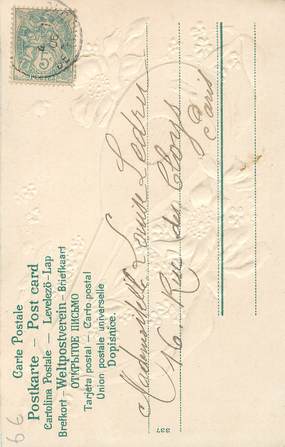 Carte Postale
Postkarte – Post card
Cartolina Postale – Levelező-Lap
Brefkort – Weltpostverein – Briefkaart
ОТКРЫТОЕ ПИСЬМО
Tarjeta postal – Carto postal
Union postale universelle
Dopisnice.
Mademoiselle Louise Ledru
16. Rue des Cloys
Paris
337
99
5